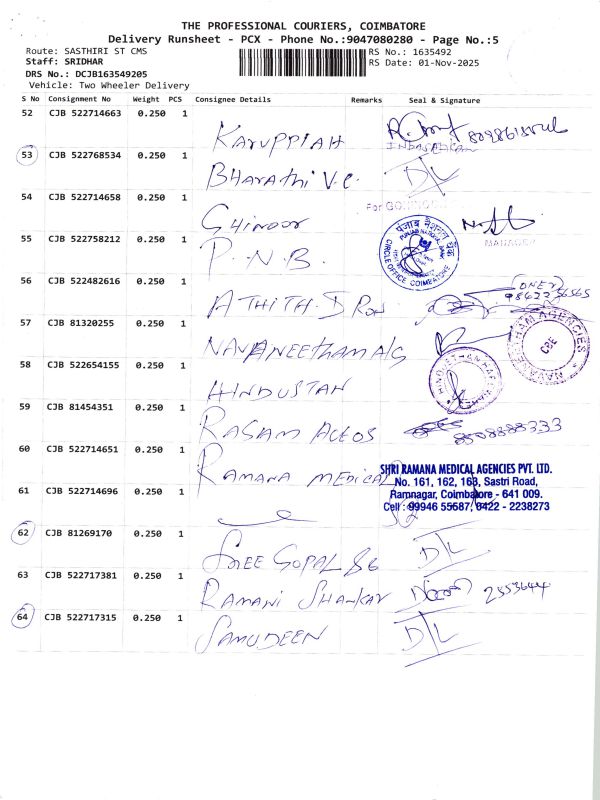 THE PROFESSIONAL COURIERS, COIMBATORE
Delivery Runsheet - PCX - Phone No.:9047080280 - Page No.:5
Route: SASTHIRI ST CMS
RS No.: 1635492
Staff: SRIDHAR
RS Date: 01-Nov-2025
DRS No.: DCJB163549205
Vehicle: Two Wheeler Delivery
S No Consignment No Weight PCS Consignee Details Remarks Seal & Signature
52 CJB 522714663 0.250 1
KARUPPIAH
53 CJB 522768534 0.250 1
Bharathi V.C. D/L
54 CJB 522714658 0.250 1
For
55 CJB 522758212 0.250 1
P.N.B.
पंजाब नैशनल बैंक
PUNJAB NATIONAL BANK
CIRCLE OFFICE COIMBATORE
MANAGER
56 CJB 522482616 0.250 1
57 CJB 81320255 0.250 1
NAVANEETHAM A/G
AGENCIES
CBE
58 CJB 522654155 0.250 1
HINDUSTAN
59 CJB 81454351 0.250 1
8508888333
60 CJB 522714651 0.250 1
RAMANA MEDICAL
SHRI RAMANA MEDICAL AGENCIES PVT. LTD.
No. 161, 162, 163, Sastri Road,
Ramnagar, Coimbatore - 641 009.
Cell : 99946 55587, 0422 - 2238273
61 CJB 522714696 0.250 1
62 CJB 81269170 0.250 1
SREE GOPAL D/L
63 CJB 522717381 0.250 1
RAMANI SHANKAR 2553644
64 CJB 522717315 0.250 1
SAMUDEEN D/L